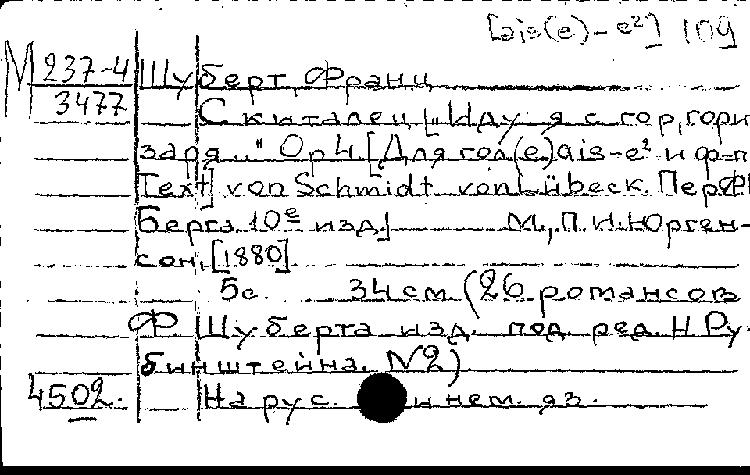 [ais(e)-e²] 109
М 237-4 Шуберт, Франц
3477 Скиталец „Иду я с гор, гори
заря..." Op 4. [Для гол(е) ais-e² и ф-п
Text] von Schmidt von Lübeck. Пер.
Берга 10е изд.] М., П.И. Юрген-
сон, [1880]
5с. 34 см (26 романсов
Ф. Шуберта изд. под ред. Н Ру-
бинштейна. N2)
4502. На рус. и нем. яз.